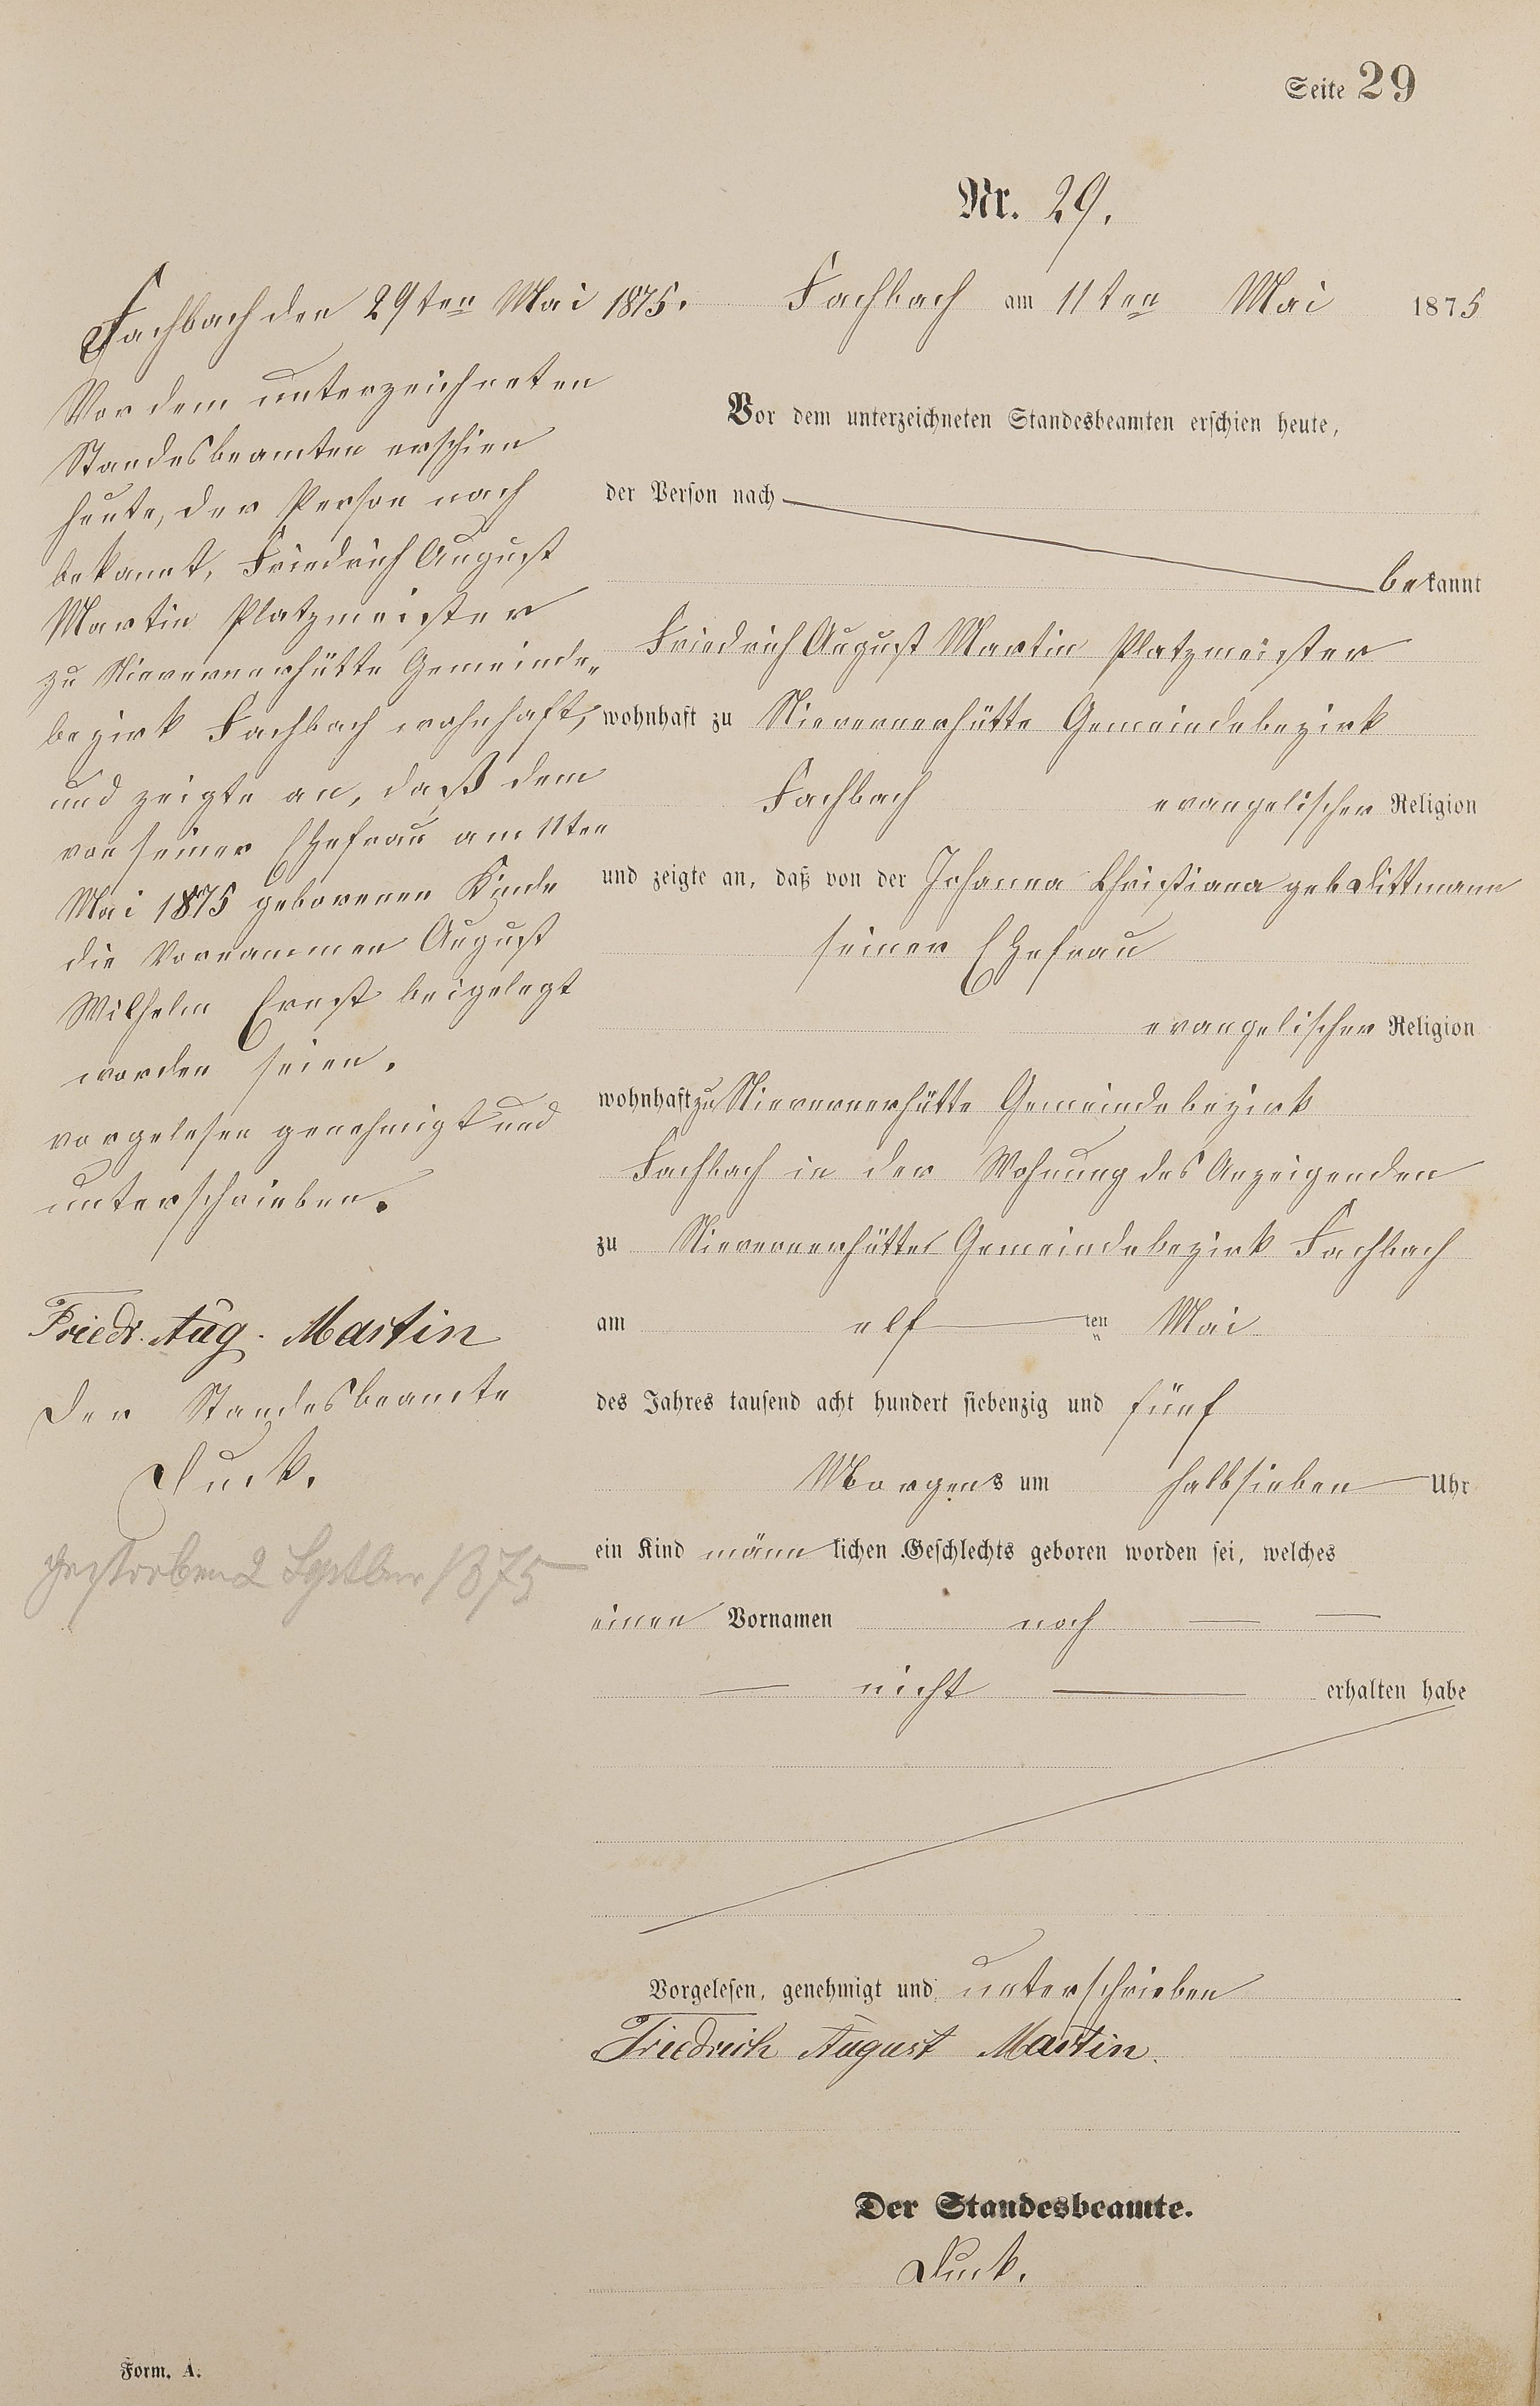 Seite 29
Nr. 29.
Fachbach am 11ten Mai 1875
Vor dem unterzeichneten Standesbeamten erschien heute,
der Person nach
bekannt
Friedrich August Martin Platzmeister
wohnhaft zu Nievernerhütte Gemeindebezirk
Fachbach evangelischer Religion
und zeigte an, daß von der Johanna Christiana geb. Dittmann
seiner Ehefrau
evangelischer Religion
wohnhaft zu Nievernerhütte Gemeindebezirk
Fachbach in der Wohnung des Anzeigenden
zu Nievernerhütte Gemeindebezirk Fachbach
am elf ten Mai
des Jahres tausend acht hundert siebenzig und fünf
Morgens um halbsieben Uhr
ein Kind männlichen Geschlechts geboren worden sei, welches
einen Vornamen noch
nicht erhalten habe
Vorgelesen, genehmigt und unterschrieben
Friedrich August Martin.
Der Standesbeamte.
Duck.
Fachbach den 29ten Mai 1875.
Vor dem unterzeichneten
Standesbeamten erschien
heute, der Person nach
bekannt, Friedrich August
Martin Platzmeister
zu Nievernerhütte Gemeinde-
bezirk Fachbach wohnhaft,
und zeigte an, daß dem
von seiner Ehefrau am 11ten
Mai 1875 geborenen Kinde
die Vornammen August
Wilhelm Ernst beigelegt
worden seien.
vorgelesen genehmigt und
unterschrieben.
Friedr. Aug. Martin
Der Standesbeamte
Duck.
gestorben 2 Septber 1875
Form. A.